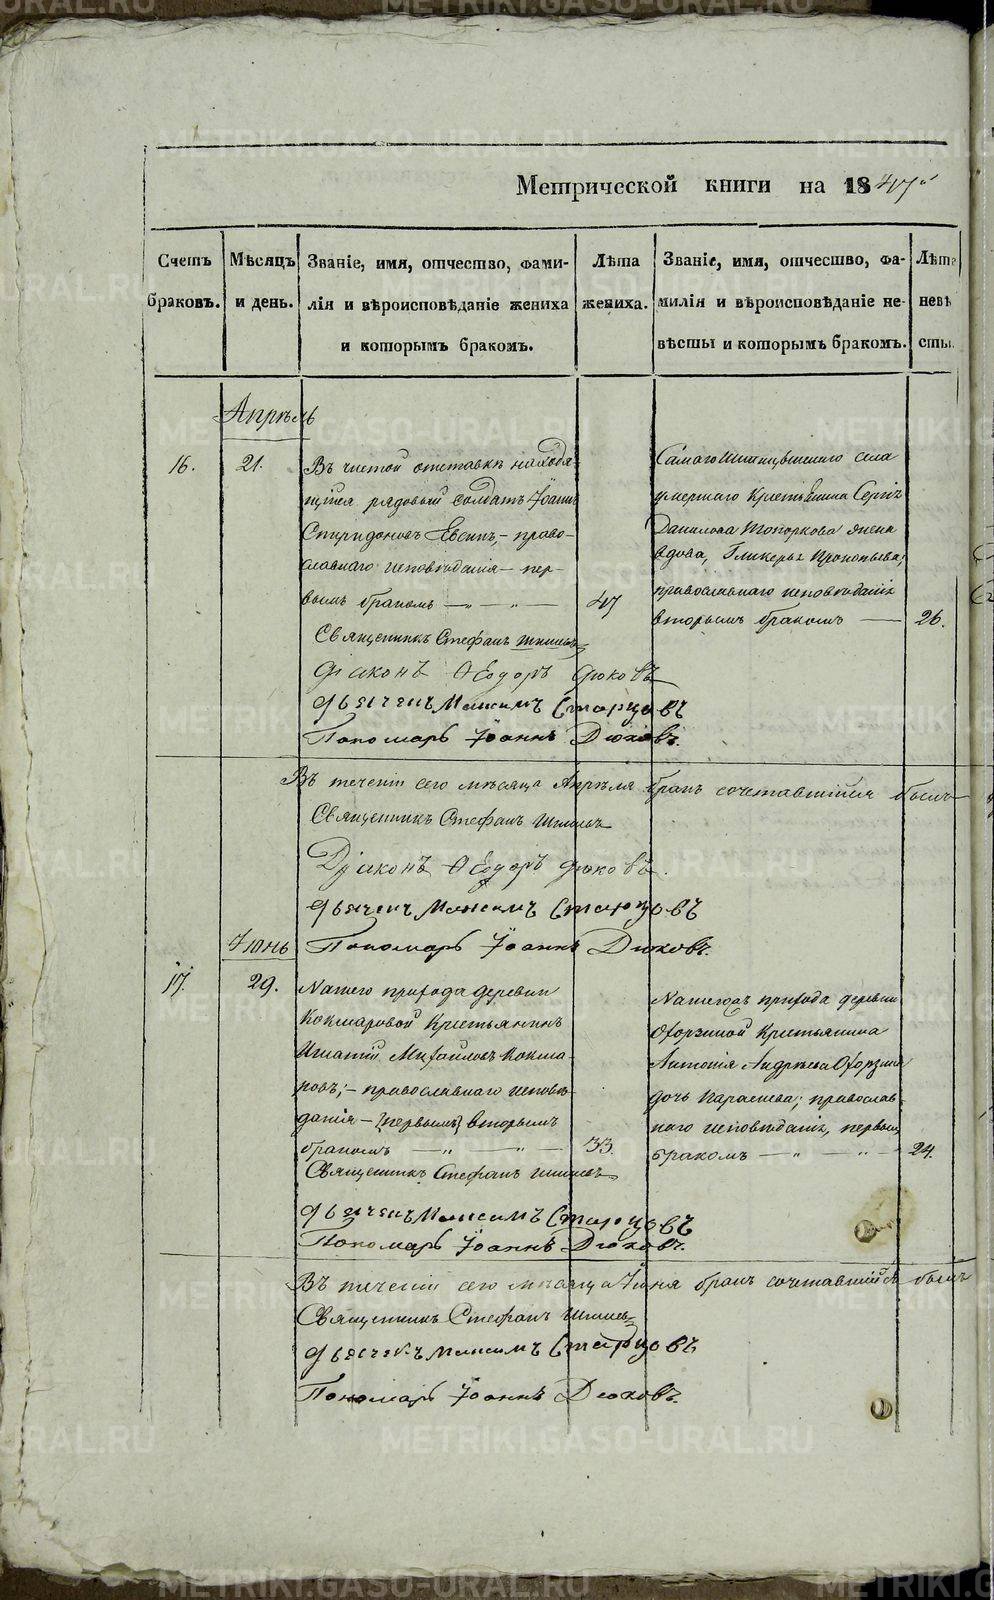 METRIKI.GASO-URAL.RU
Метрической книги на 1847й
Счетъ браковъ.
Мѣсяцъ и день.
Званіе, имя, отчество, фами-
лія и вѣроисповѣданіе жениха
и которымъ бракомъ.
Лѣта
жениха.
Званіе, имя, отчество, фа-
милія и вѣроисповѣданіе не-
вѣсты и которымъ бракомъ.
Лѣта
невѣ
сты.
Апрѣль
16.
21.
Въ чистой отставкѣ находя
щійся рядовый солдатъ Іоаннъ
Спиридоновъ Евсинъ, – право-
славнаго исповѣданія – пер-
вымъ бракомъ — „ — „ —
47
Священникъ Стефанъ
Діаконъ Ѳеодоръ Дюковъ
Дьячекъ Максимъ Старцовъ
Пономарь Іоаннъ Дюковъ.
Самаго села
умершаго Крестьянина Сергія
Данилова Топоркова жена
вдова, Гликерья Прокопьева,
православнаго исповѣданія
вторымъ бракомъ —
26.
Въ теченіи сего мѣсяца Апрѣля бракъ сочетавшійся былъ
Священникъ Стефанъ
Діаконъ Ѳеодоръ Дюковъ.
Дьячекъ Максимъ Старцовъ
Пономарь Іоаннъ Дюковъ.
Іюнь
17.
29.
Нашего прихода деревни
Кокшаровой Крестьянинъ
Игнатій Михайловъ Кокша-
ровъ; – православнаго исповѣ-
данія – [первымъ] вторымъ
бракомъ — „ — „ —
33.
Священникъ Стефанъ
Дьячекъ Максимъ Старцовъ
Пономарь Іоаннъ Дюковъ.
Нашегожъ прихода деревни
Охорзиной Крестьянина
Антонія Андрѣева Охорзина
дочь Параскева; православ-
наго исповѣданія, первымъ
бракомъ — „ — „ —
24.
Въ теченіи сего мѣсяца Іюня бракъ сочетавшійся былъ
Священникъ Стефанъ
Дьячекъ Максимъ Старцовъ
Пономарь Іоаннъ Дюковъ.